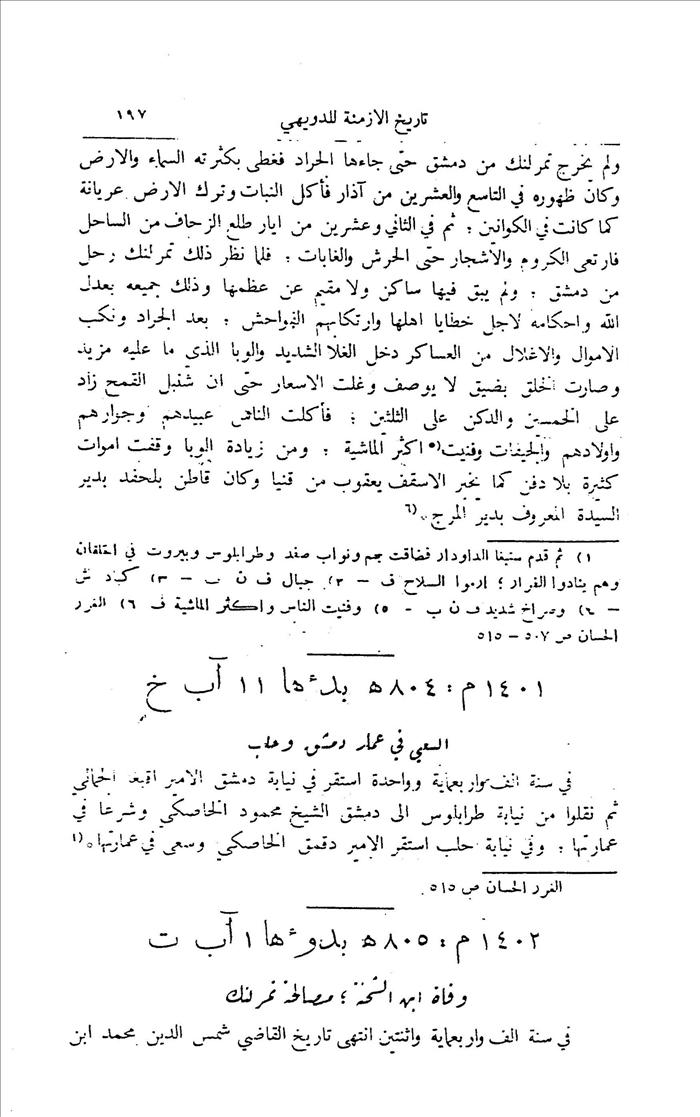 تاريخ الازمنة للدويهي ١٩٧
ولم يخرج تمرلنك من دمشق حتّى جاءها الجراد فغطى بكثرته السماء والارض
وكان ظهوره في التاسع والعشرين من آذار فأكل النبات وترك الارض عريانة
كما كانت في الكوانين ؛ ثم في الثاني وعشرين من ايار طلع الزحاف من الساحل
فارتعى الكروم والأشجار حتّى الحرش والغابات ؛ فلما نظر ذلك تمرلنك رحل
من دمشق ؛ ولم يبق فيها ساكن ولا مقيم عن عظمها وذلك جميعه بعدل
الله واحكامه لاجل خطايا اهلها وارتكابهم الفواحش ؛ بعد الجراد ونكب
الاموال والاغلال من العساكر دخل الغلا الشديد والوبا الذي ما عليه مزيد
وصارت الخلق بضيق لا يوصف وغلت الاسعار حتّى ان شنبل القمح زاد
على الخمسين والدكن على الثلثين ؛ فأكلت الناس عبيدهم وجوارهم
واولادهم والجيفات وفنيت(٥ اكثر الماشية ؛ ومن زيادة الوبا وقفت اموات
كثيرة بلا دفن كما يخبر الاسقف يعقوب من قنيا وكان قاطن بلحفد بدير
السيّدة المعروف بدير المرج.(٦
١) ثم قدم سنيفا الداودار فضاقت بهم ونواب صفد وطرابلوس وبيروت في اختلفان
وهم ينادوا الفرار ؛ ارموا السلاح ف – ٢) جبال ف ن ب – ٣) كباد ش
– ٤) وصراخ شديد ف ن ب - ٥) وفنيت الناس واكثر الماشية ف ٦) الغرر
الحسان ص ٥٠٧ – ٥١٥
١٤٠١ م : ٨٠٤ ه بدءها ١١ آب خ
السعي في عمار دمشق وحلب
في سنة الف واربعماية وواحدة استقر في نيابة دمشق الامير اقبغا الجمالي
ثم نقلوا من نيابة طرابلوس الى دمشق الشيخ محمود الخاصكي وشرعا في
عمارتها ؛ وفي نيابة حلب استقر الامير دقمق الخاصكي وسعى في عمارتها.(١
الغرر الحسان ص ٥١٥
١٤٠٢ م : ٨٠٥ ه بدوءها ١ آب ت
وفاة ابن الشحنة ؛ مصالحة تمرلنك
في سنة الف واربعماية واثنتين انتهى تاريخ القاضي شمس الدين محمد ابن